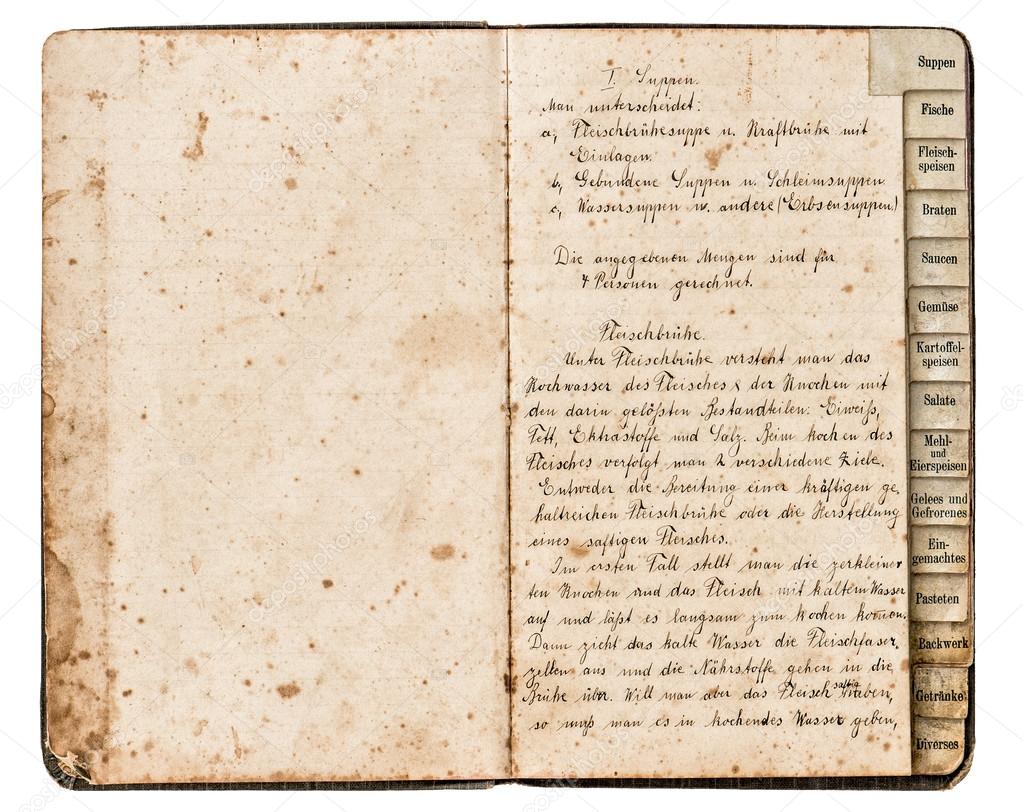 I. Suppen.
Man unterscheidet:
a, Fleischbrühesuppe u. Kraftbrühe mit
Einlagen.
b, Gebundene Suppen u. Schleimsuppen
c, Wassersuppen u. andere (Erbsensuppen)
Die angegebenen Mengen sind für
4 Personen gerechnet.
Fleischbrühe.
Unter Fleischbrühe versteht man das
Kochwasser des Fleisches & der Knochen mit
den darin gelößten Bestandteilen: Eiweiß,
Fett, Ektrastoffe und Salz. Beim kochen des
Fleisches verfolgt man 2 verschiedene Ziele.
Entweder die Bereitung einer kräftigen ge,
haltreichen Fleischbrühe oder die Herstellung
eines saftigen Fleisches.
Im ersten Fall stellt man die zerkleiner
ten Knochen und das Fleisch mit kaltem Wasser
auf und läßt es langsam zum kochen kommen.
Dann zieht das kalte Wasser die Fleischfaser,
zellen aus und die Nährstoffe gehen in die
Brühe über. Will man aber das Fleisch saftig haben,
so muß man es in kochendes Wasser geben,
Suppen
Fische
Fleisch-
speisen
Braten
Saucen
Gemüse
Kartoffel-
speisen
Salate
Mehl-
und
Eierspeisen
Gelees und
Gefrorenes
Ein-
gemachtes
Pasteten
Backwerk
Getränke
Diverses